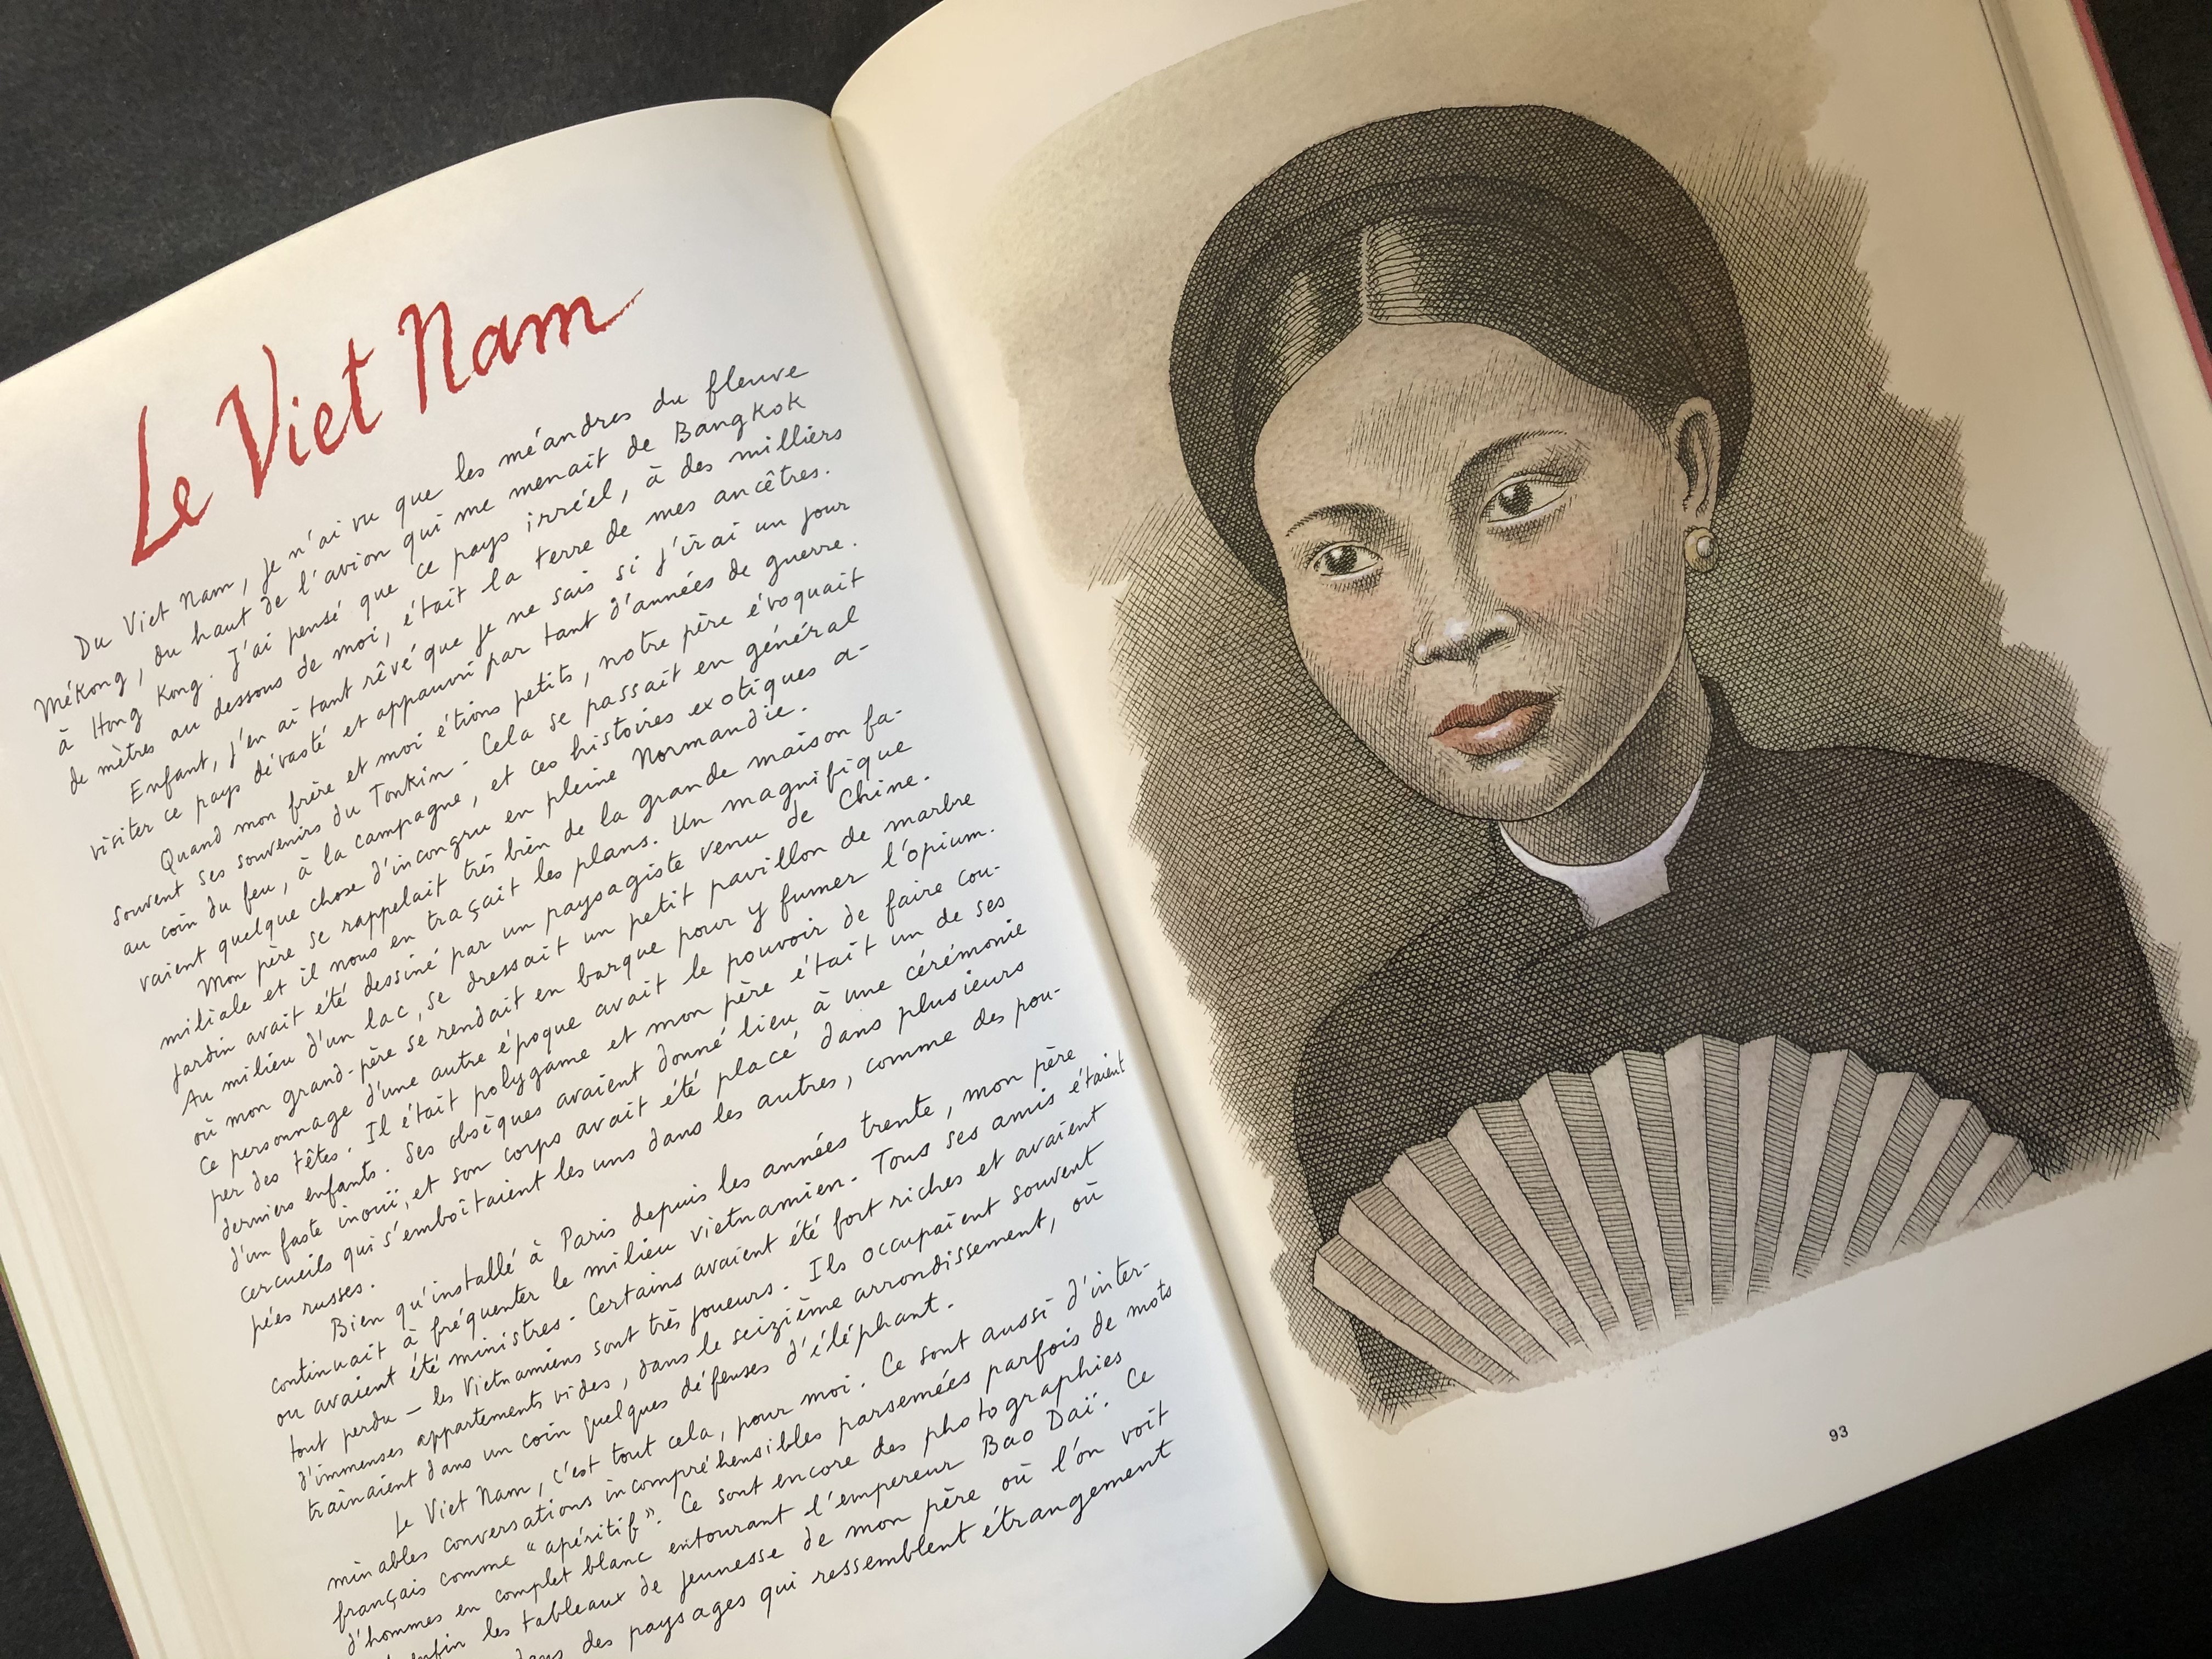 Le Viet Nam
Du Viet Nam, je n'ai vu que les méandres du fleuve
Mékong, du haut de l'avion qui me menait de Bangkok
à Hong Kong. J'ai pensé que ce pays irréel, à des milliers
de mètres au dessous de moi, était la terre de mes ancêtres.
Enfant, j'en ai tant rêvé que je ne sais si j'irai un jour
visiter ce pays dévasté et appauvri par tant d'années de guerre.
Quand mon frère et moi étions petits, notre père évoquait
souvent ses souvenirs du Tonkin. Cela se passait en général
au coin du feu, à la campagne, et ces histoires exotiques a-
vaient quelque chose d'incongru en pleine Normandie.
Mon père se rappelait très bien de la grande maison fa-
miliale et il nous en traçait les plans. Un magnifique
jardin avait été dessiné par un paysagiste venu de Chine.
Au milieu d'un lac, se dressait un petit pavillon de marbre
où mon grand-père se rendait en barque pour y fumer l'opium.
Ce personnage d'une autre époque avait le pouvoir de faire cou-
per des têtes. Il était polygame et mon père était un de ses
derniers enfants. Ses obsèques avaient donné lieu à une cérémonie
d'un faste inouï, et son corps avait été placé dans plusieurs
cercueils qui s'emboîtaient les uns dans les autres, comme des pou-
pées russes.
Bien qu'installé à Paris depuis les années trente, mon père
continuait à fréquenter le milieu vietnamien. Tous ses amis étaient
ou avaient été ministres. Certains avaient été fort riches et avaient
tout perdu — les Vietnamiens sont très joueurs. Ils occupaient souvent
d'immenses appartements vides, dans le seizième arrondissement, où
traînaient dans un coin quelques défenses d'éléphant.
Le Viet Nam, c'est tout cela, pour moi. Ce sont aussi d'inter-
minables conversations incompréhensibles parsemées parfois de mots
français comme "apéritif". Ce sont encore des photographies
d'hommes en complet blanc entourant l'empereur Bao Daï. Ce
enfin les tableaux de jeunesse de mon père où l'on voit
dans des paysages qui ressemblent étrangement
93